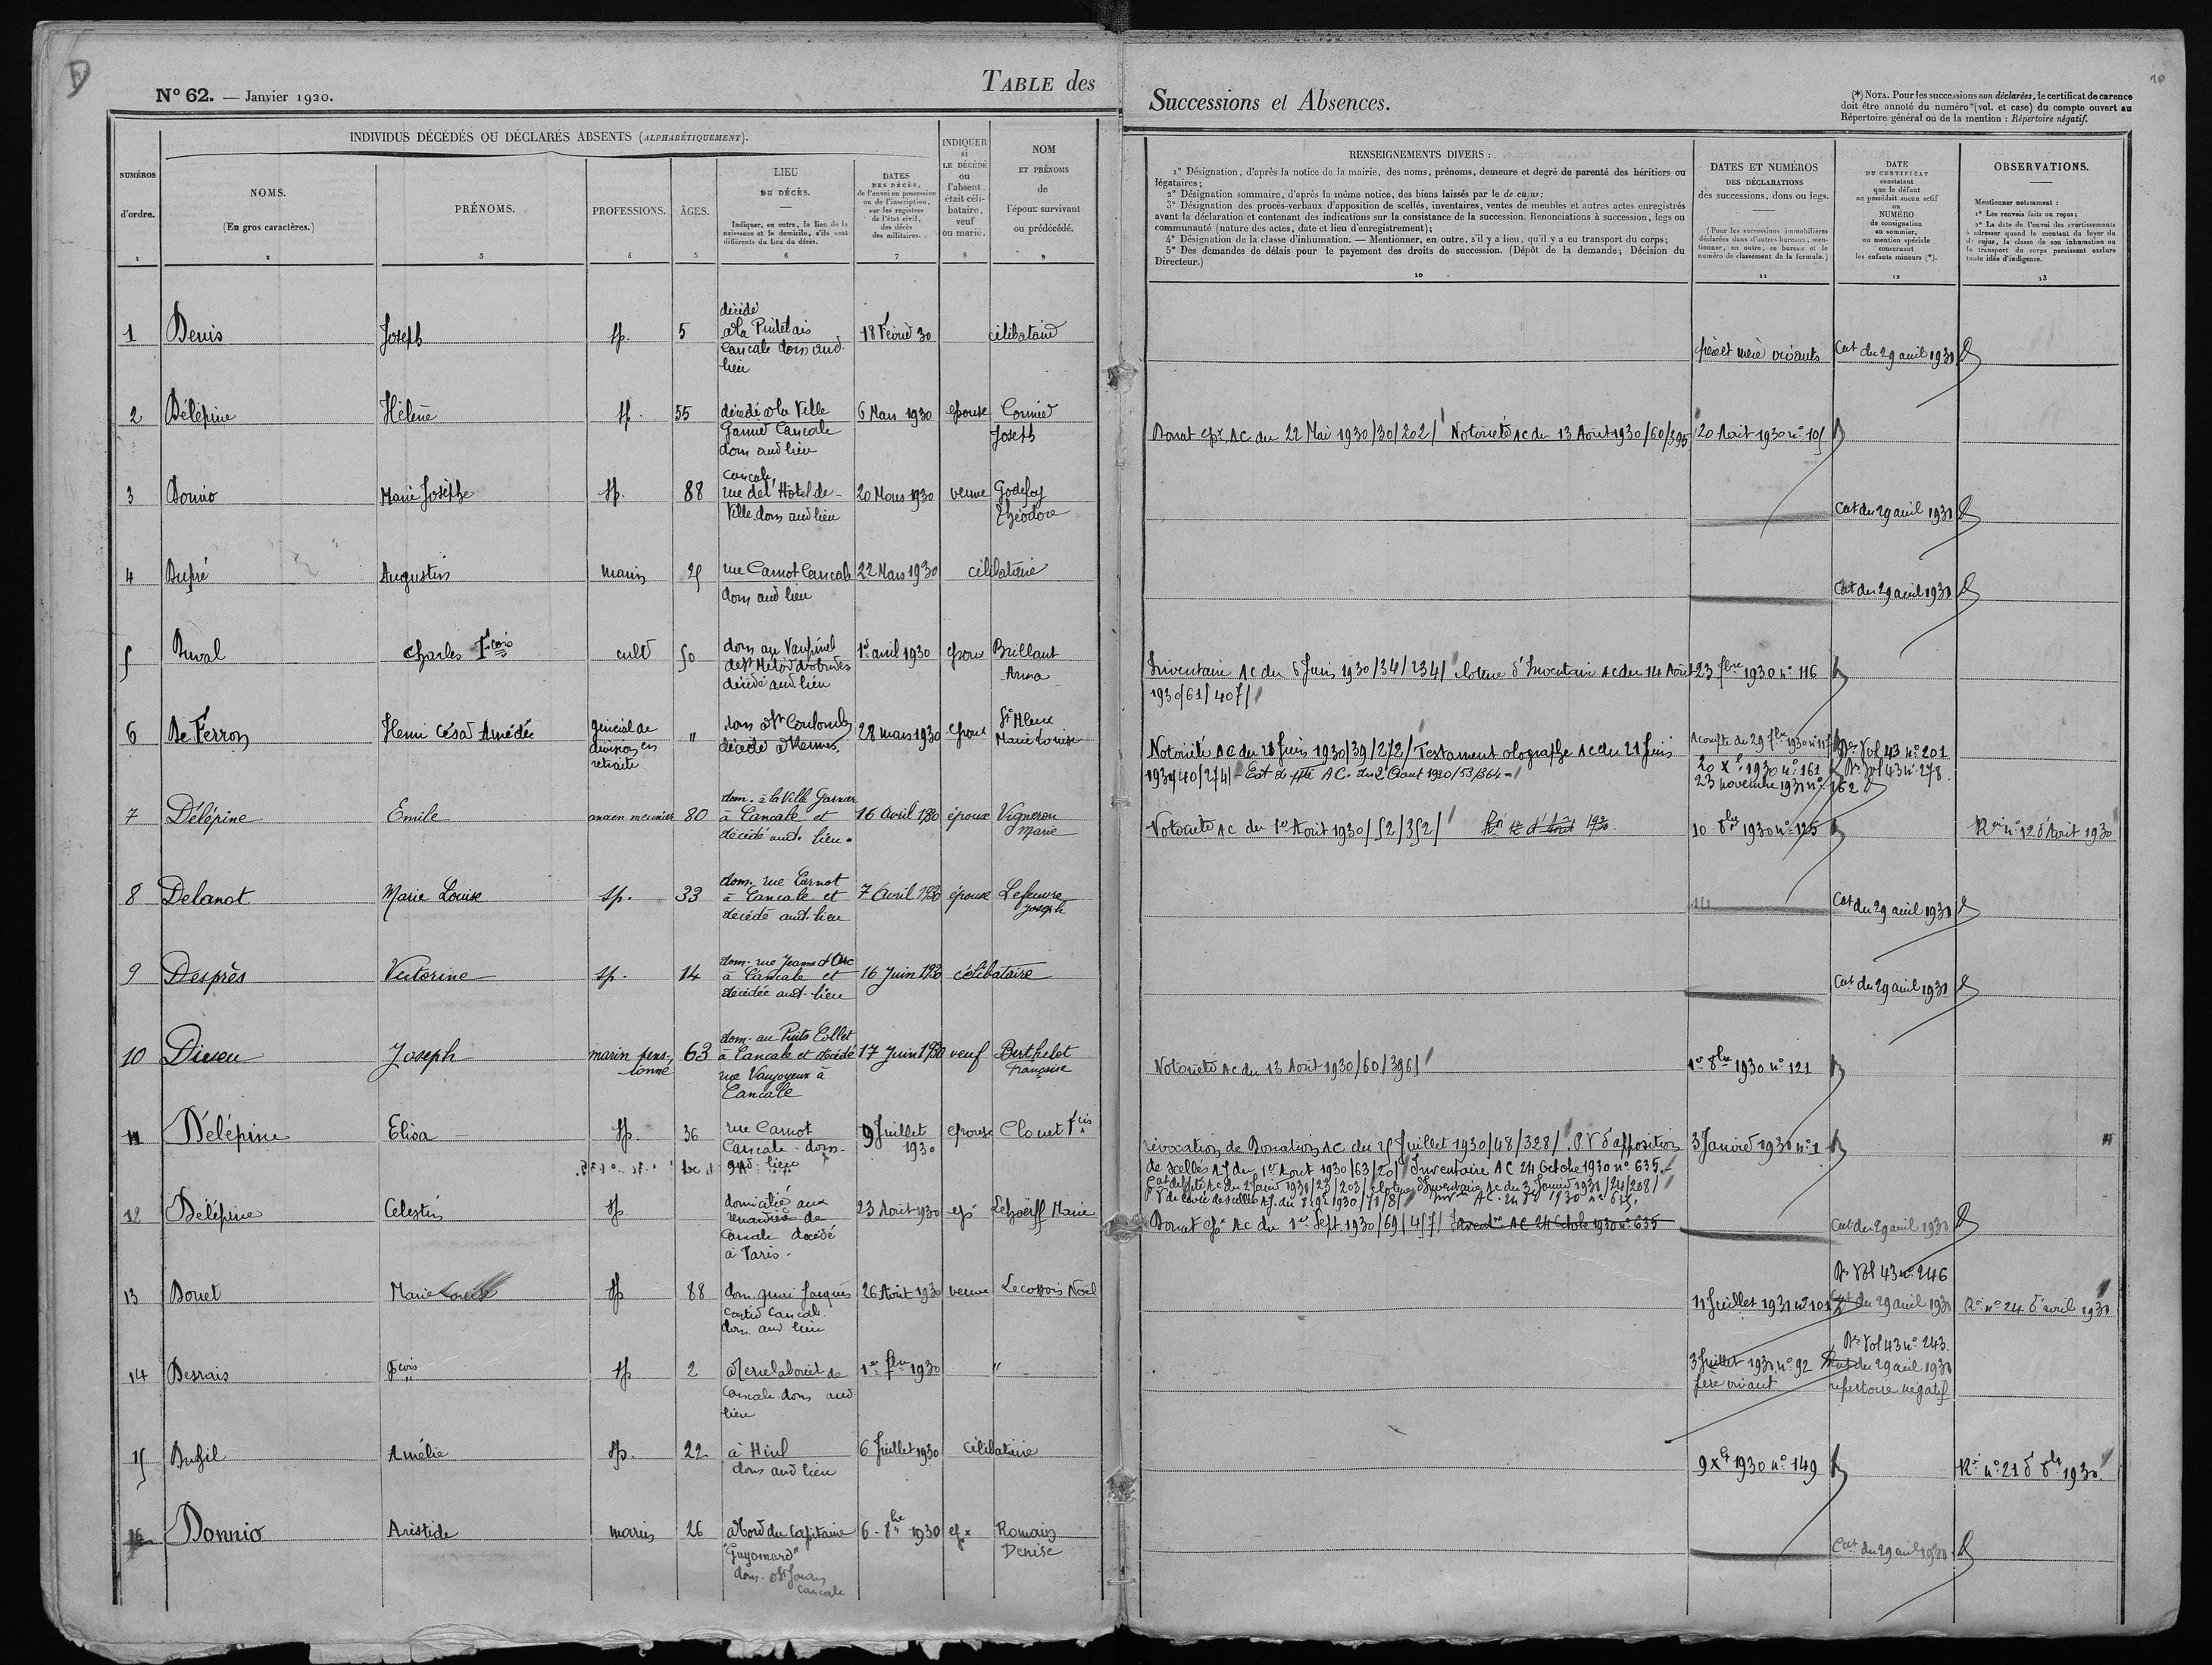 D
N° 62. — Janvier 1920.
TABLE des
Successions et Absences.
(*) NOTA. Pour les successions non déclarées, le certificat de carence
doit être annoté du numéro (vol. et case) du compte ouvert au
Répertoire général ou de la mention : Répertoire négatif.
INDIVIDUS DÉCÉDÉS OU DÉCLARÉS ABSENTS (ALPHABÉTIQUEMENT).
NUMÉROS
d'ordre.
1
NOMS.
(En gros caractères.)
2
PRÉNOMS.
3
PROFESSIONS.
4
ÂGES.
5
LIEU
DU DÉCÈS.
Indiquer, en outre, le lieu de la
naissance et le domicile, s'ils sont
différents du lieu du décès.
6
DATES
DES DÉCÈS,
de l'envoi en possession
ou de l'inscription,
sur les registres
de l'état civil,
des décès
des militaires.
7
INDIQUER
si
LE DÉCÉDÉ
ou
l'absent
était céli-
bataire,
veuf
ou marié.
8
NOM
ET PRÉNOMS
de
l'époux survivant
ou prédécédé.
9
RENSEIGNEMENTS DIVERS :
1° Désignation, d'après la notice de la mairie, des noms, prénoms, demeure et degré de parenté des héritiers ou
légataires;
2° Désignation sommaire, d'après la même notice, des biens laissés par le de cujus;
3° Désignation des procès-verbaux d'apposition de scellés, inventaires, ventes de meubles et autres actes enregistrés
avant la déclaration et contenant des indications sur la consistance de la succession. Renonciations à succession, legs ou
communauté (nature des actes, date et lieu d'enregistrement);
4° Désignation de la classe d'inhumation. — Mentionner, en outre, s'il y a lieu, qu'il y a eu transport du corps;
5° Des demandes de délais pour le payement des droits de succession. (Dépôt de la demande; Décision du
Directeur.)
10
DATES ET NUMÉROS
DES DÉCLARATIONS
des successions, dons ou legs.
(Pour les successions immobilières
déclarées dans d'autres bureaux, men-
tionner, en outre, ce bureau et le
numéro de classement de la formule.)
11
DATE
DU CERTIFICAT
constatant
que le défunt
ne possédait aucun actif
ou
NUMÉRO
de consignation
au sommier,
ou mention spéciale
concernant
les enfants mineurs (*).
12
OBSERVATIONS.
Mentionner notamment :
1° Les renvois faits ou reçus;
2° La date de l'envoi des avertissements
à adresser quand le montant du loyer du
de cujus, la classe de son inhumation ou
le transport du corps paraissent exclure
toute idée d'indigence.
13
1 Denis Joseph sp. 5 18 Février 30 célibataire
décédé
à la
Cancale dom aud.
lieu
père et mère vivants Cat du 29 avril 1931
2 Délépine Hélène sp. 55 décédé à la Ville 6 Mars 1930 épouse
Garnier Cancale Joseph
dom aud lieu
Donat epx AC du 22 Mai 1930/30/202/ Notoriété AC du 13 Août 1930/60/395 20 Août 1930 n° 105
3 Donnio Marie Josèphe sp. 88 20 Mars 1930 veuve Godefroy
Cancale,
rue de l'Hôtel de-
Ville dom aud lieu Théodore
Cat du 29 avril 1931
4 Dupré Augustin marin 25 rue Carnot Cancale 22 Mars 1930 célibataire
dom aud lieu
Cat du 29 avril 1931
5 Duval Charles Fcois cultr 50 1er avril 1930 époux Brillant
dom au
décédé aud lieu Anna
Inventaire AC du 6 Juin 1930/34/234/ cloture d'Inventaire AC du 14 Août 23 1930 n° 116
1930/61/407/
6 De Ferron Henri César Amédée général de " dom à St Coulomb 28 mars 1930 époux
division en décédé à Rennes. Marie Louise
retraite
Notoriété AC du Juin 1930/39/272/ Testament olographe AC du 21 Juin
1930/40/274/ - Eat de AC. du 2 Aout 1930/53/364 =
Acompte du 29 1930 n° 117 Vol 43 n° 201
20 Xbre 1930 n° 161 Vol 43 n° 278.
23 novembre 1931 n° 162
7 Délépine Emile ancien meunier 80 16 Avril 1930 époux Vigneron
dom. à la Ville Garnier
à Cancale et
décédé aud. lieu. Marie
Notoriété AC du 1er Août 1930/52/352/
10 8bre 1930 n° 125 n° 12 d'Août 1930
8 Delanot Marie Louise sp. 33 7 Avril 1930 épouse Lefeuvre
dom. rue Carnot
à Cancale et
décédé aud. lieu Joseph
Cat du 29 avril 1931
9 Desprès Victorine sp. 14 16 Juin 1930 célibataire
dom. rue Jeanne d'Arc
à Cancale et
décédée aud. lieu
Cat du 29 avril 1931
10 Joseph marin pens- 63 17 Juin 1930 veuf Berthelot
dom. au Puits Collet
à Cancale et décédé
-ionné rue Vaujoyeux à Française
Cancale
Notoriété AC du 13 Août 1930/60/396/ 1er 8bre 1930 n° 121
11 Délépine Elisa sp. 36 rue Carnot 9 Juillet épouse Clouet Fcis
Cancale - dom. 1930
aud. lieu
révocation de Donation AC du 25 Juillet 1930/48/328/ P.V d'apposition 3 Janvier 1931 n° 1
de scellés AJ du 1er Aout 1930/63/20/ Inventaire AC 24 Octobre 1930 n° 635.
AC du 2 Janv 1931/23/203/ cloture d'Inventaire AC du 3 Janvier 1931/24/208/
P.V de levée de scellés AJ. du 1930/71/8/
12 Délépine Celestin sp. domicilié aux 23 Août 1930 epx Marie
de
Cancale décédé
à Paris.
Donat epx AC du 1er Sept. 1930/69/457/ Inventre AC 24 Octobre 1930 n° 635
Cat du 29 avril 1931
13 Douet Marie Louise sp 88 dom. quai Jacques 26 Août 1930 veuve Lecossois Noël
Cartier Cancale
dom. aud lieu
Vol 43 n° 246
11 Juillet 1931 n° 101 Cat du 29 avril 1931 n° 24 d'avril 1931
14 Desrais Fcois sp 2 1er 1930 "
Cancale dom aud
lieu
Vol 43 n° 243.
3 Juillet 1931 n° 92 Cat du 29 avril 1931
père vivant répertoire négatif
15 Amélie sp. 22 6 Juillet 1930 célibataire
dom aud lieu
9 Xbre 1930 n° 149 n° 21 d 8bre 1930.
16 Donnio Aristide marin 26 à bord du Capitaine 6 - 8bre 1930 epx Romain
"Guyomard" Denise
dom. St Jouan
Cancale
Cat du 29 avril 1931.